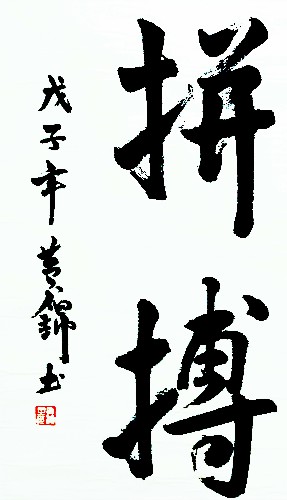 拼搏
戊子年黄锦书